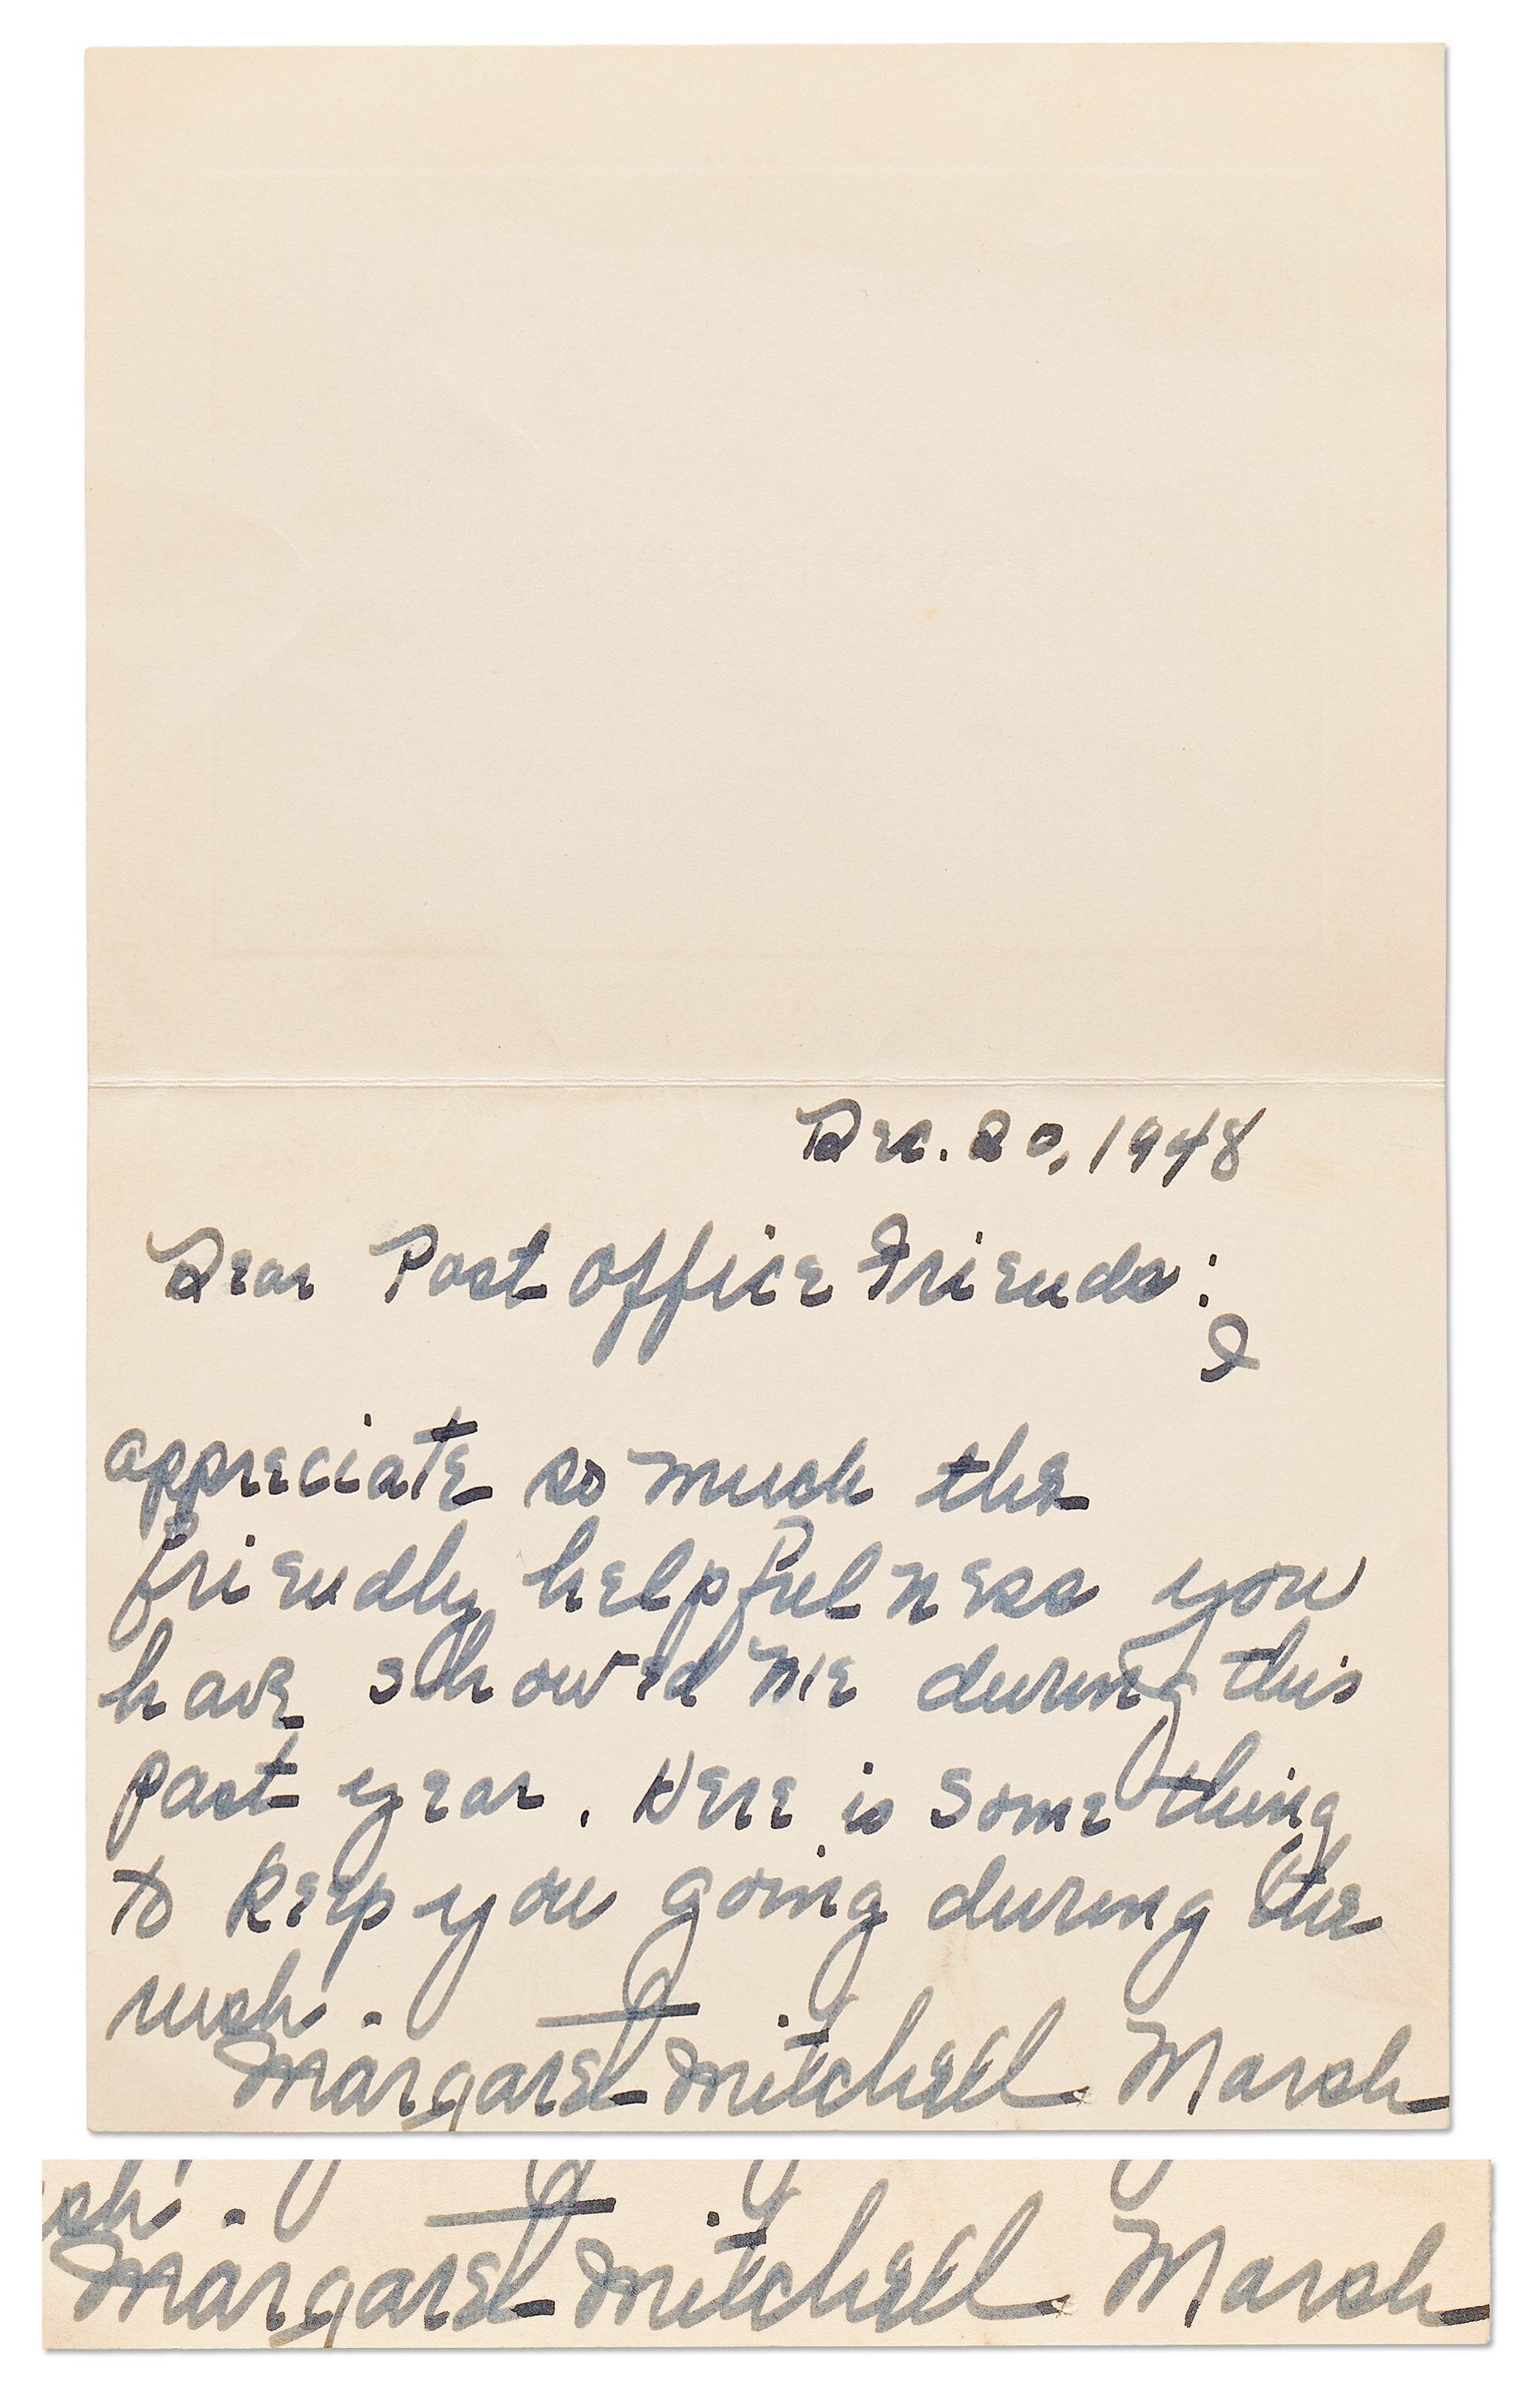 Dec. 20, 1948
Dear Post Office Friends:
I
appreciate so much the
friendly helpfulness you
have showed me during this
past year. Here is something
to keep you going during the
rush.
Margaret Mitchell Marsh
sh.
Margaret Mitchell Marsh